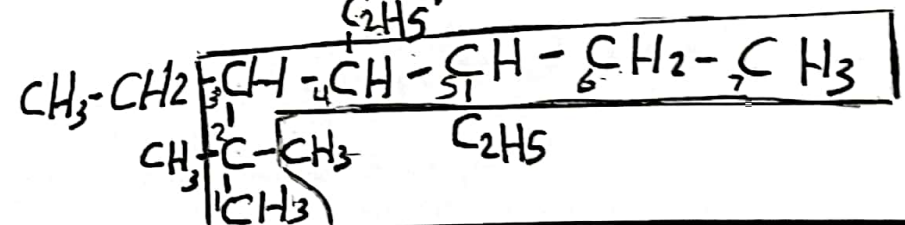 C2H5
CH3-CH2-3CH-4CH-5CH-6CH2-7CH3
CH3-2C-CH3 C2H5
1CH3